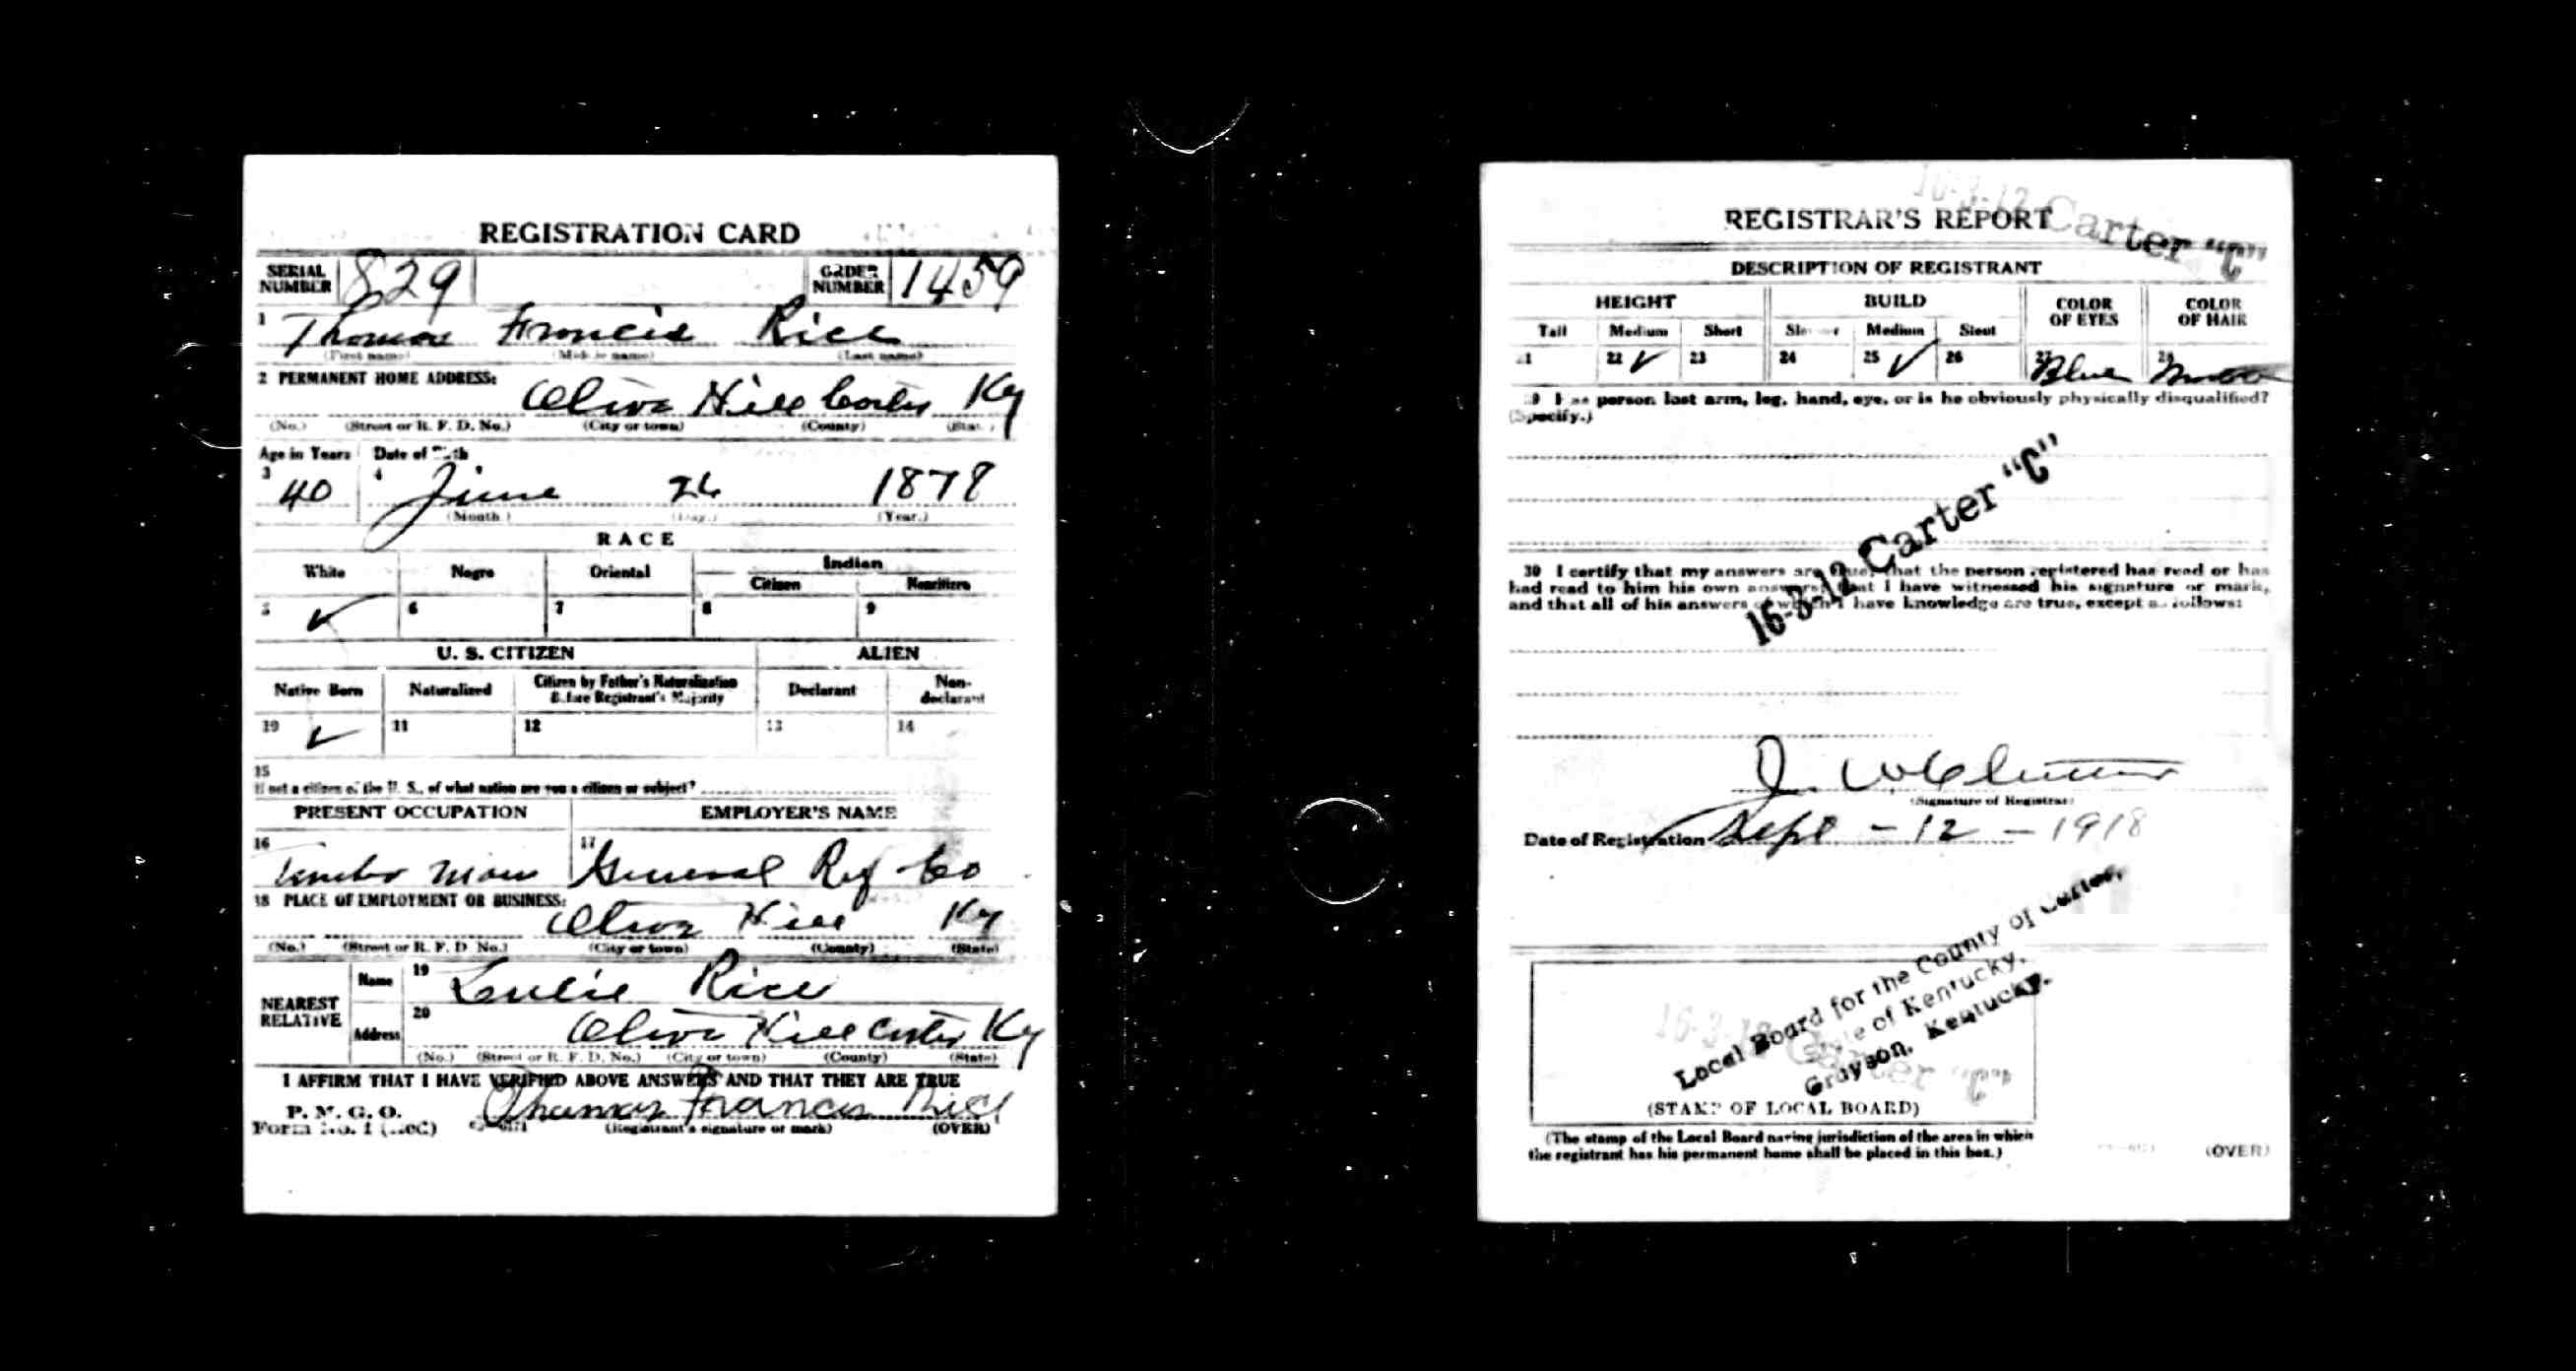 REGISTRATION CARD
SERIAL NUMBER 829 ORDER NUMBER 1459
1 Thomas Francis Rice
(First name) (Middle name) (Last name)
2 PERMANENT HOME ADDRESS:
Olive Hill Carter Ky
(No.) (Street or R. F. D. No.) (City or town) (County) (State)
Age in Years Date of Birth
3 40 4 June 26 1878
(Month) (Day.) (Year.)
RACE
White Negro Oriental Indian
Citizen Noncitizen
5 ✓ 6 7 8 9
U. S. CITIZEN ALIEN
Native Born Naturalized Citizen by Father's Naturalization Before Registrant's Majority Declarant Non-declarant
10 ✓ 11 12 13 14
15
If not a citizen of the U. S., of what nation are you a citizen or subject?
PRESENT OCCUPATION EMPLOYER'S NAME
16 17
Timber Man General Ref Co
18 PLACE OF EMPLOYMENT OR BUSINESS:
Olive Hill Ky
(No.) (Street or R. F. D. No.) (City or town) (County) (State)
NEAREST RELATIVE
Name 19 Rice
Address 20 Olive Hill Carter Ky
(No.) (Street or R. F. D. No.) (City or town) (County) (State)
I AFFIRM THAT I HAVE VERIFIED ABOVE ANSWERS AND THAT THEY ARE TRUE
P. M. G. O.
Form No. 1 (Red) Thomas Francis Rice
(Registrant's signature or mark) (OVER)
16-3-12 Carter "C"
REGISTRAR'S REPORT
DESCRIPTION OF REGISTRANT
HEIGHT BUILD COLOR OF EYES COLOR OF HAIR
Tall Medium Short Slender Medium Stout
21 22 ✓ 23 24 25 ✓ 26 27 Blue 28
29 Has person lost arm, leg, hand, eye, or is he obviously physically disqualified?
(Specify.)
16-3-12 Carter "C"
30 I certify that my answers are true, that the person registered has read or has
had read to him his own answers, that I have witnessed his signature or mark,
and that all of his answers of which I have knowledge are true, except as follows:
(Signature of Registrar)
Date of Registration Sept - 12 - 1918
Local Board for the County of Carter,
State of Kentucky,
Grayson, Kentucky.
16-3-12 Carter "C"
(STAMP OF LOCAL BOARD)
(The stamp of the Local Board having jurisdiction of the area in which
the registrant has his permanent home shall be placed in this box.)
(OVER)